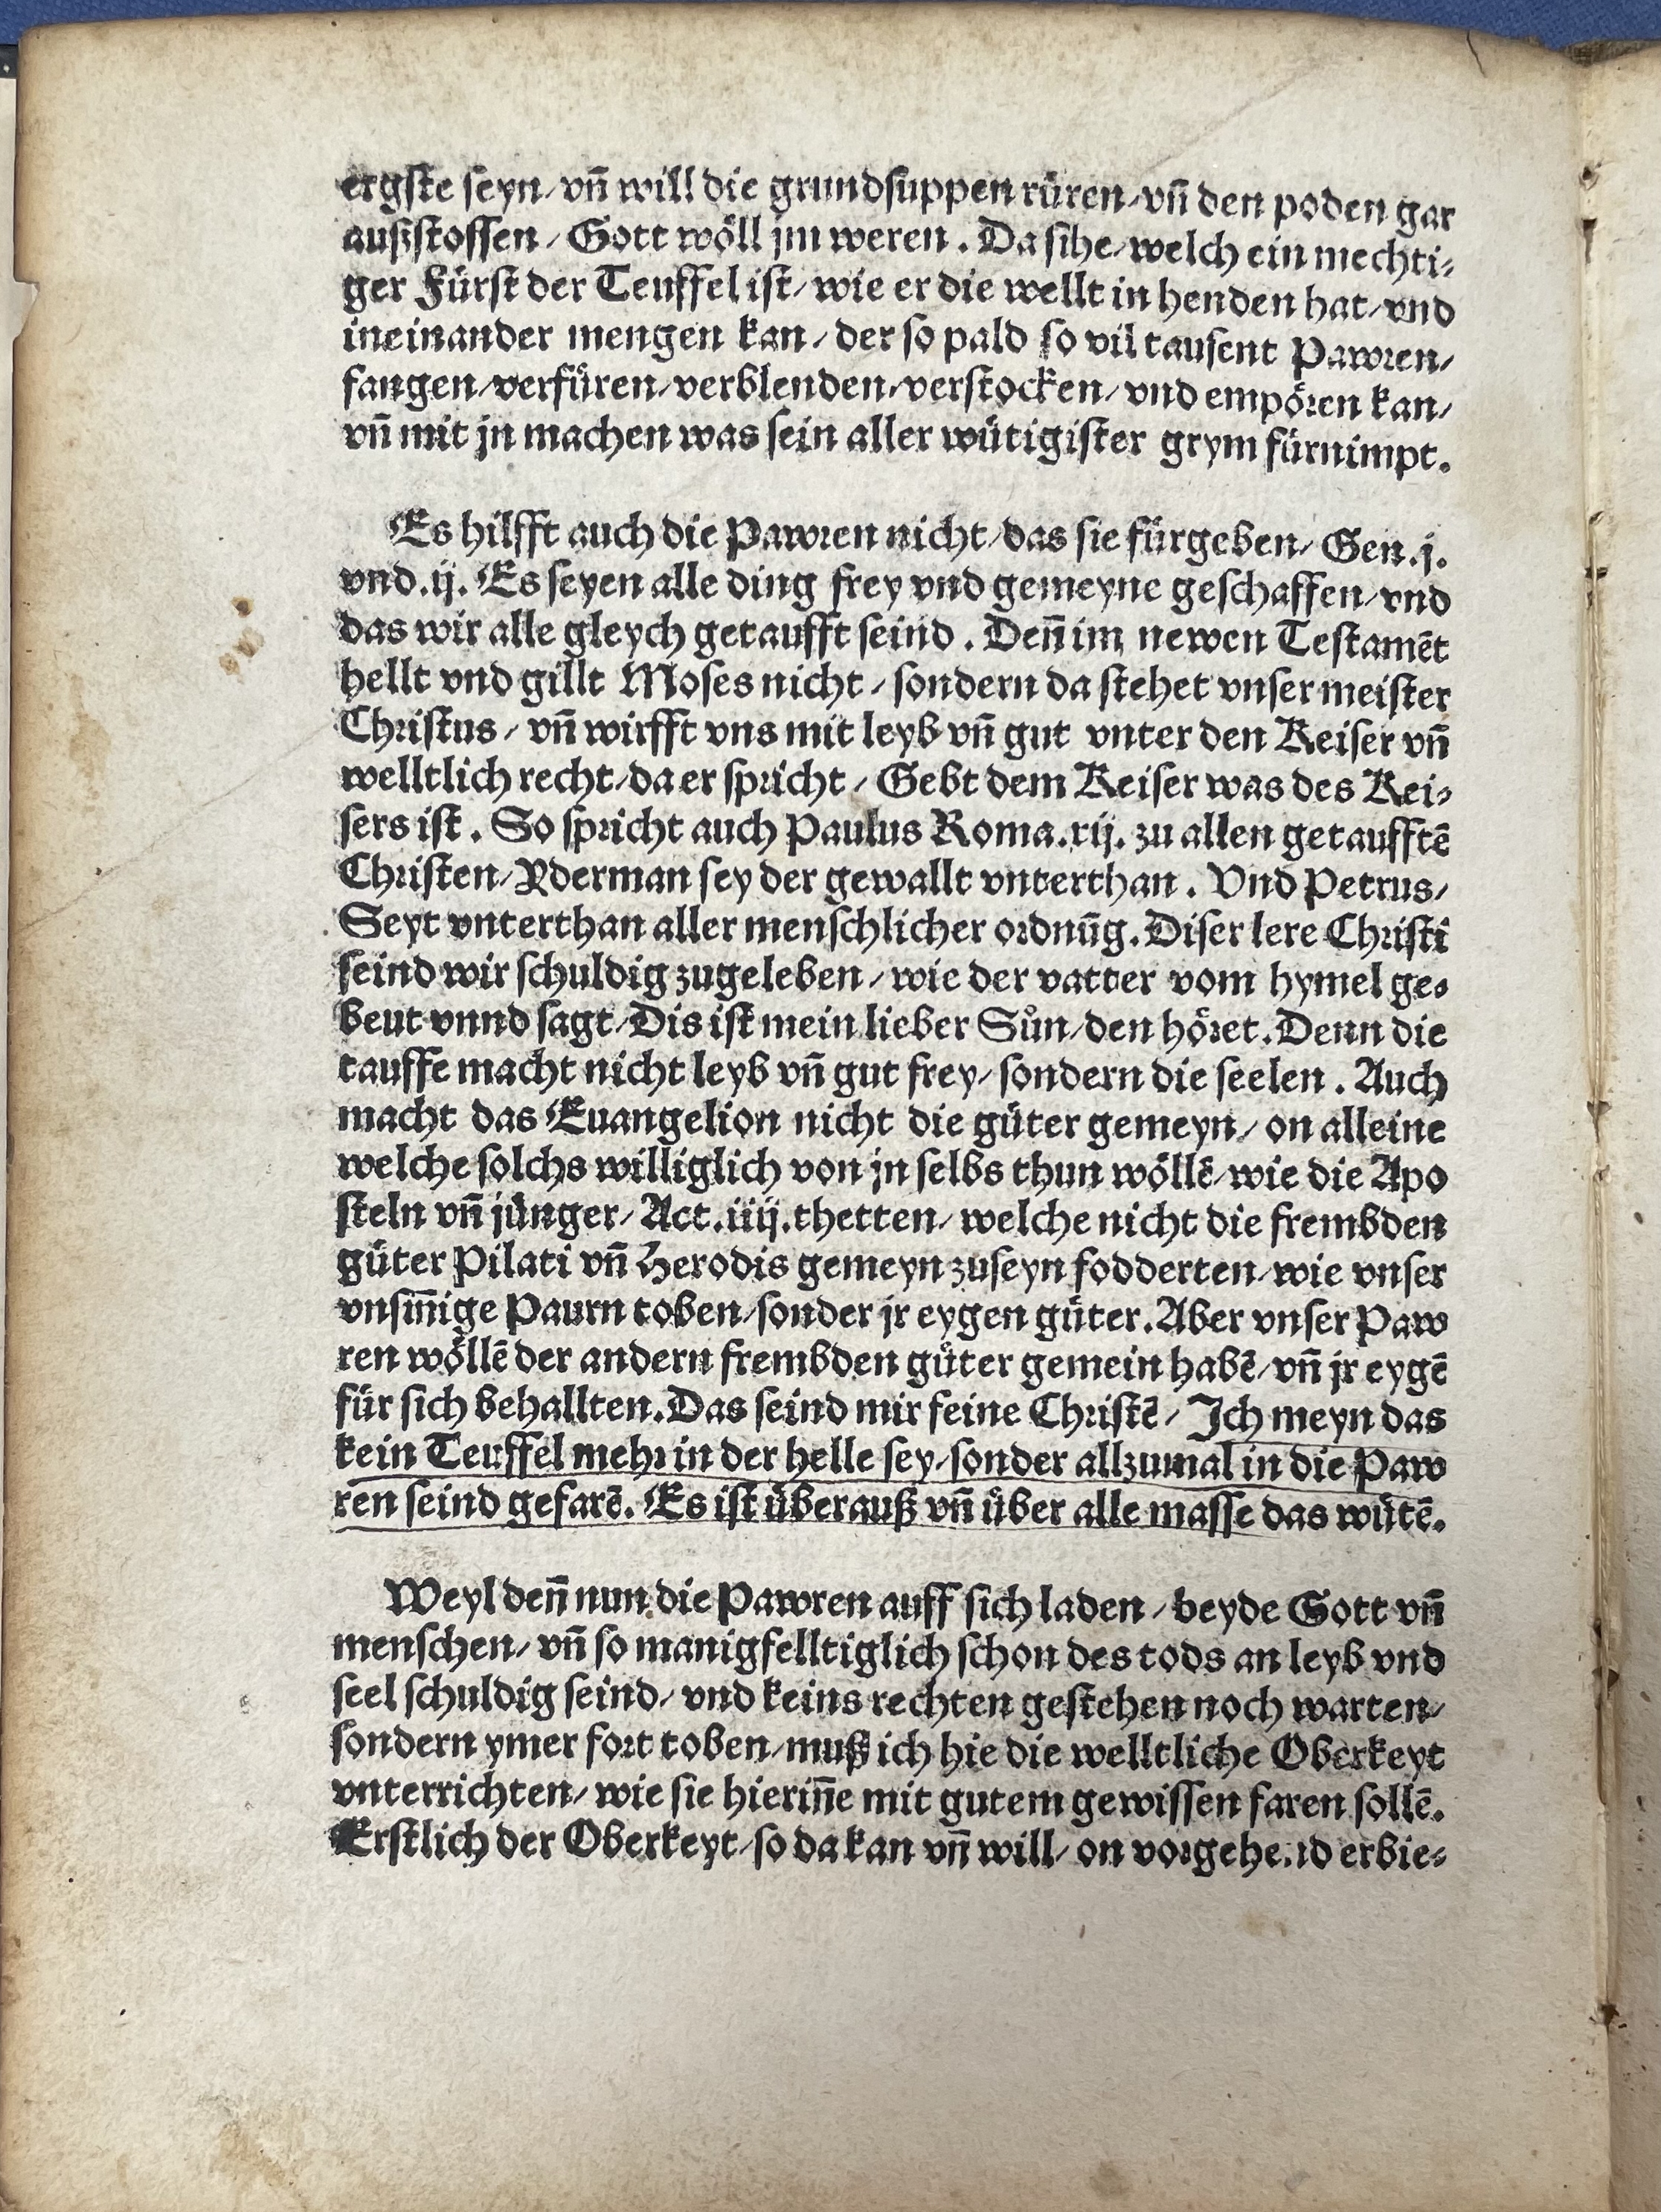 ergste seyn/ vñ will die grundsuppen rüren/ vñ den poden gar
außstossen/ Gott wöll jm weren. Da sihe/ welch ein mechti-
ger Fürst der Teuffel ist/ wie er die wellt in henden hat/ vnd
ineinander mengen kan/ der so pald so vil tausent Pawren/
fangen/ verfüren/ verblenden/ verstocken/ vnd empören kan/
vñ mit jn machen was sein aller wütigister grym fürnimpt.
Es hilfft auch die Pawren nicht/ das sie fürgeben/ Gen.j.
vnd.ij. Es seyen alle ding frey vnd gemeyne geschaffen/ vnd
das wir alle gleych getaufft seind. Deñ im newen Testamēt
hellt vnd gillt Moses nicht/ sondern da stehet vnser meister
Christus/ vñ wirfft vns mit leyb vñ gut vnter den Keiser vñ
welltlich recht/ da er spricht/ Gebt dem Keiser was des Kei-
sers ist. So spricht auch Paulus Roma.xij. zu allen getaufftē
Christen/ Yderman sey der gewallt vnterthan. Vnd Petrus/
Seyt vnterthan aller menschlicher ordnūg. Diser lere Christi
seind wir schuldig zugeleben/ wie der vatter vom hymel ge-
beut vnnd sagt/ Dis ist mein lieber Sůn/ den höret. Denn die
tauffe macht nicht leyb vñ gut frey/ sondern die seelen. Auch
macht das Euangelion nicht die güter gemeyn/ on alleine
welche solchs williglich von jn selbs thun wöllē/ wie die Apo
steln vñ jünger/ Act.iiij. thetten/ welche nicht die frembden
güter Pilati vñ Herodis gemeyn zuseyn fodderten/ wie vnser
vnsiñige Paurn toben/ sonder jr eygen güter. Aber vnser Paw
ren wöllē der andern frembden güter gemein habē/ vñ jr eygē
für sich behallten. Das seind mir feine Christē/ Ich meyn das
kein Teuffel mehr in der helle sey/ sonder allzumal in die Paw
ren seind gefarē. Es ist überauß vñ über alle masse das wütē.
Weyl deñ nun die Pawren auff sich laden/ beyde Gott vñ
menschen/ vñ so manigfelltiglich schon des tods an leyb vnd
seel schuldig seind/ vnd keins rechten gestehen noch warten/
sondern ymer fort toben/ muß ich hie die welltliche Oberkeyt
vnterrichten/ wie sie hieriñe mit gutem gewissen faren sollē.
Erstlich der Oberkeyt/ so da kan vñ will/ on vorgehend erbie-